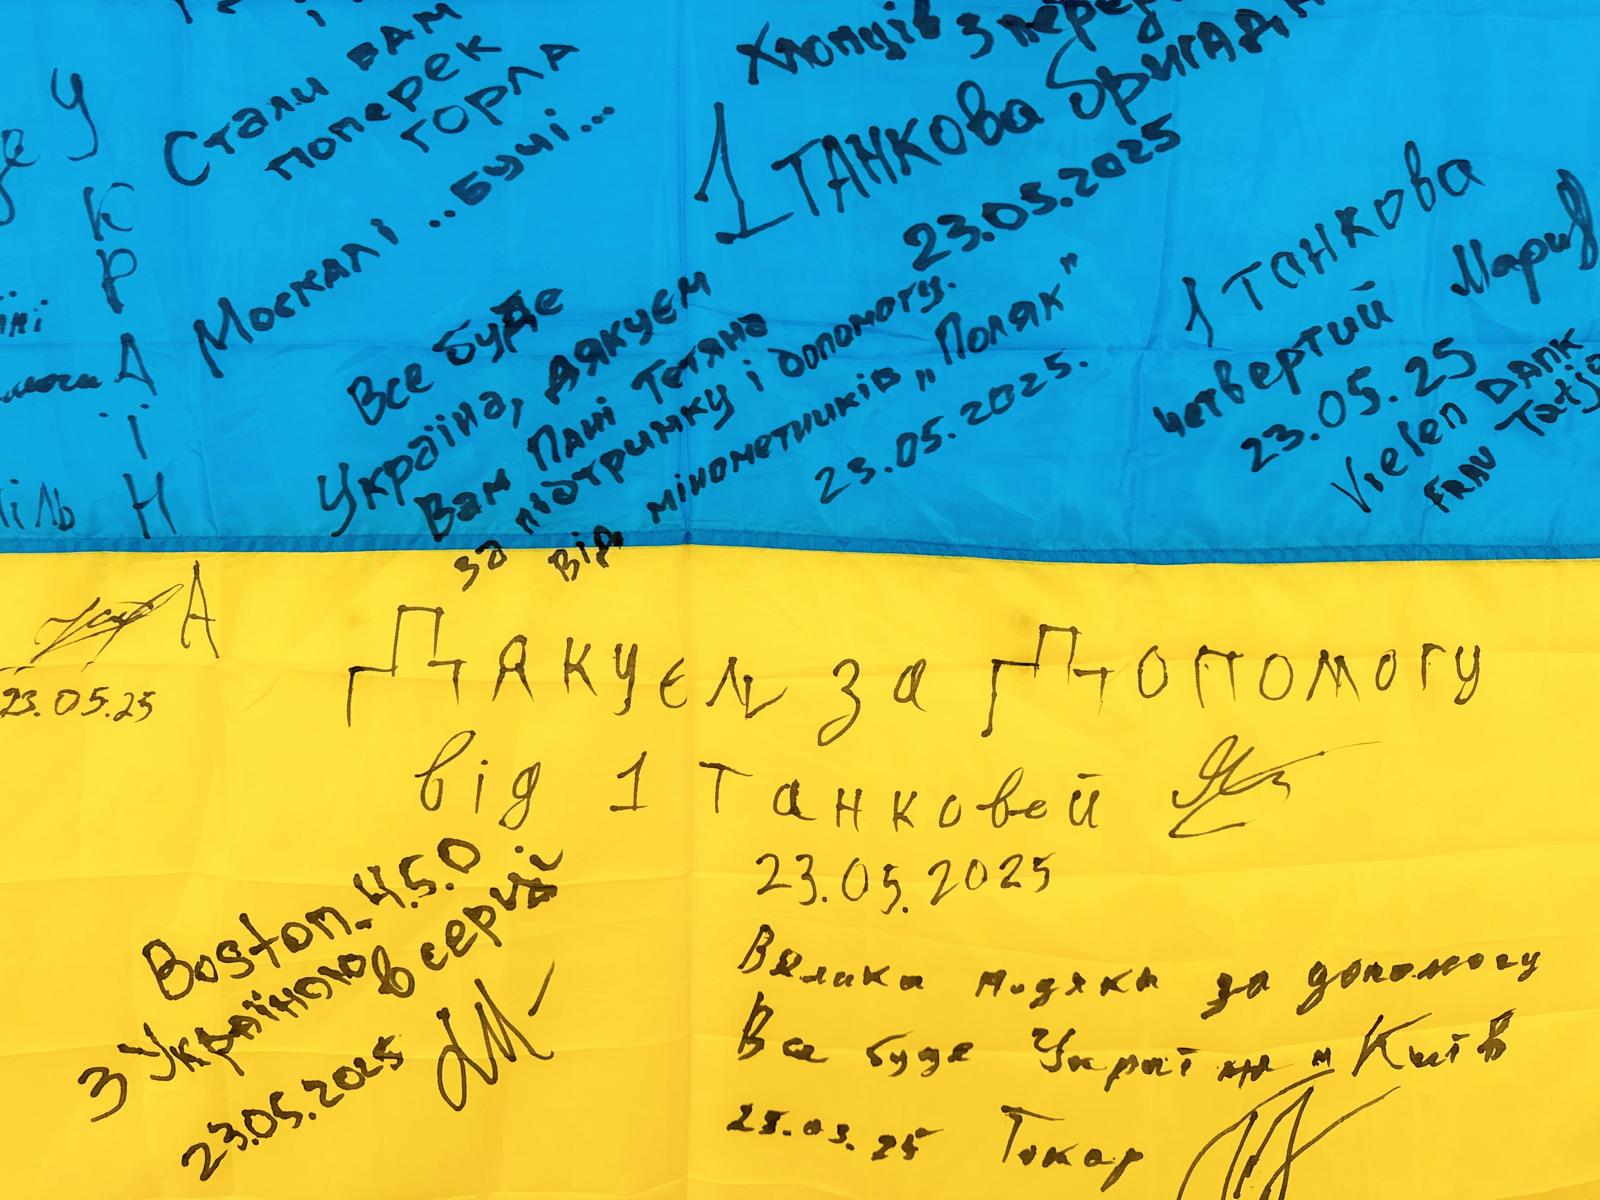 Стали вам
поперек
горла
Москалі ...бучі...
Хлопців з
1 ТАНКОВа бригади
23.05.2025
У
К
Р
А
Ї
Н
А
23.05.25
Все буде
Україна, дякуєм
Вам Пані Тетяна
за підтримку і допомогу.
від мінометників „Поляк"
23.05.2025.
1 ТАНКОВа
четвертий
23.05.25
Vielen DANK
FRAU
Дякуєм за Допомогу
від 1 Танковой
23.05.2025
Boston_4.5.0
З Україною в серці
23.05.2025
Велика подяка за допомогу
Все буде Україна Київ
Токар